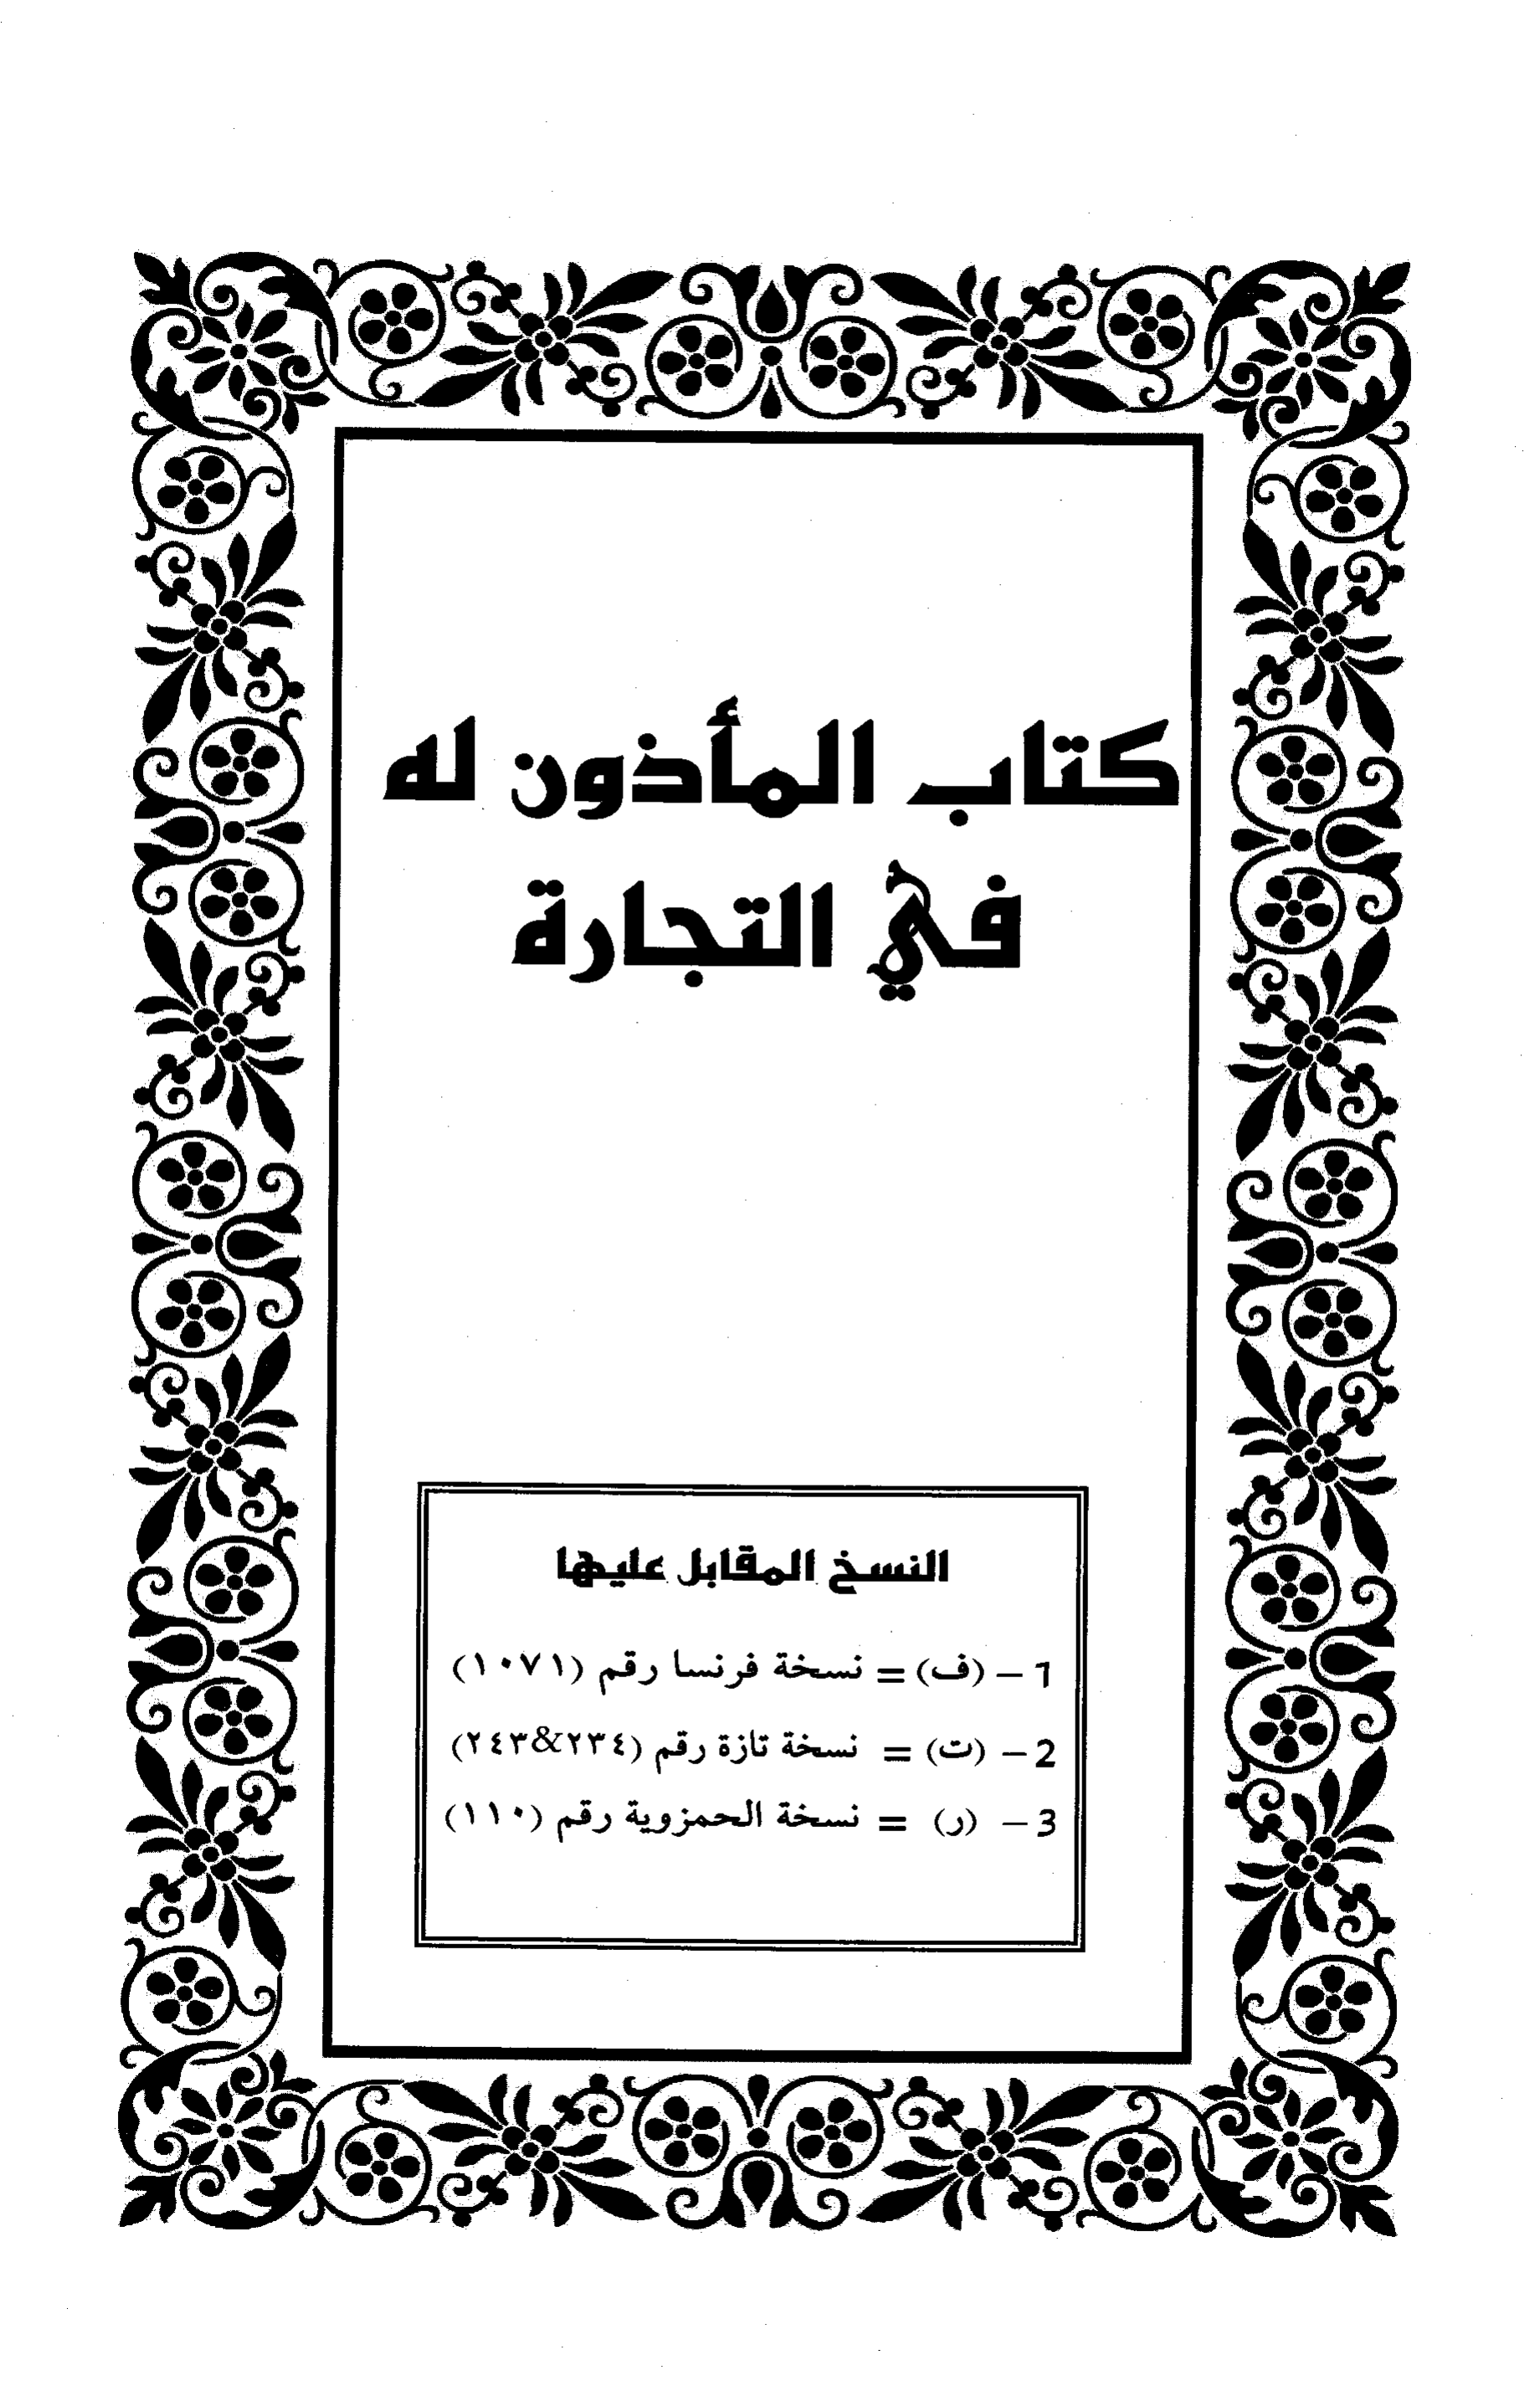 كتاب المأذون له
في التجارة
النسخ المقابل عليها
1 – (ف) = نسخة فرنسا رقم (١٠٧١)
2 – (ت) = نسخة تازة رقم (٢٣٤&٢٤٣)
3 – (ر) = نسخة الحمزوية رقم (١١٠)